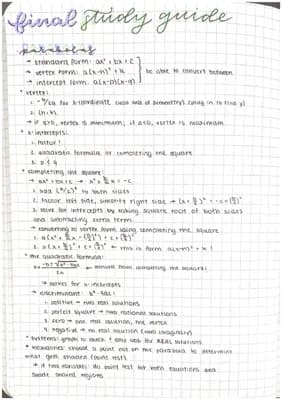 final study guide
parabolas
→ standard form: ax² + bx + c
→ vertex form: a(x-h)² + k } be able to convert between
→ intercept form: a(x-p)(x-q)
* vertex:
1. -b/2a for x-coordinate (axis of symmetry) (plug in to find y)
2. (h,k)
→ if a>0, vertex is minimum; if a<0, vertex is maximum
* x-intercepts:
1. factor!
2. quadratic formula or completing the square
3. p & q
* completing the square:
→ ax² + bx + c → x² + b/a x = -c
1. add (b/2)² to both sides
2. factor left side, simplify right side →
3. solve for intercepts by taking square root of both sides and subtracting extra term
→ converting to vertex form using completing the square
1.
2. ← this is form a(x-h)² + k !
* the quadratic formula:
x = -b ± √b²-4ac / 2a ← derived from completing the square!
→ solves for x-intercepts
→ discriminant: b²-4ac!
1. positive → two real solutions
2. perfect square → two rational solutions
3. zero → one real solution, the vertex
4. negative → no real solution (two imaginary)
* systems: graph to check & only ask for REAL solutions
* inequalities: choose a point not on the parabola to determine
what gets shaded (point test)
→ if two parabolas: do point test for both equations and
shade shared regions